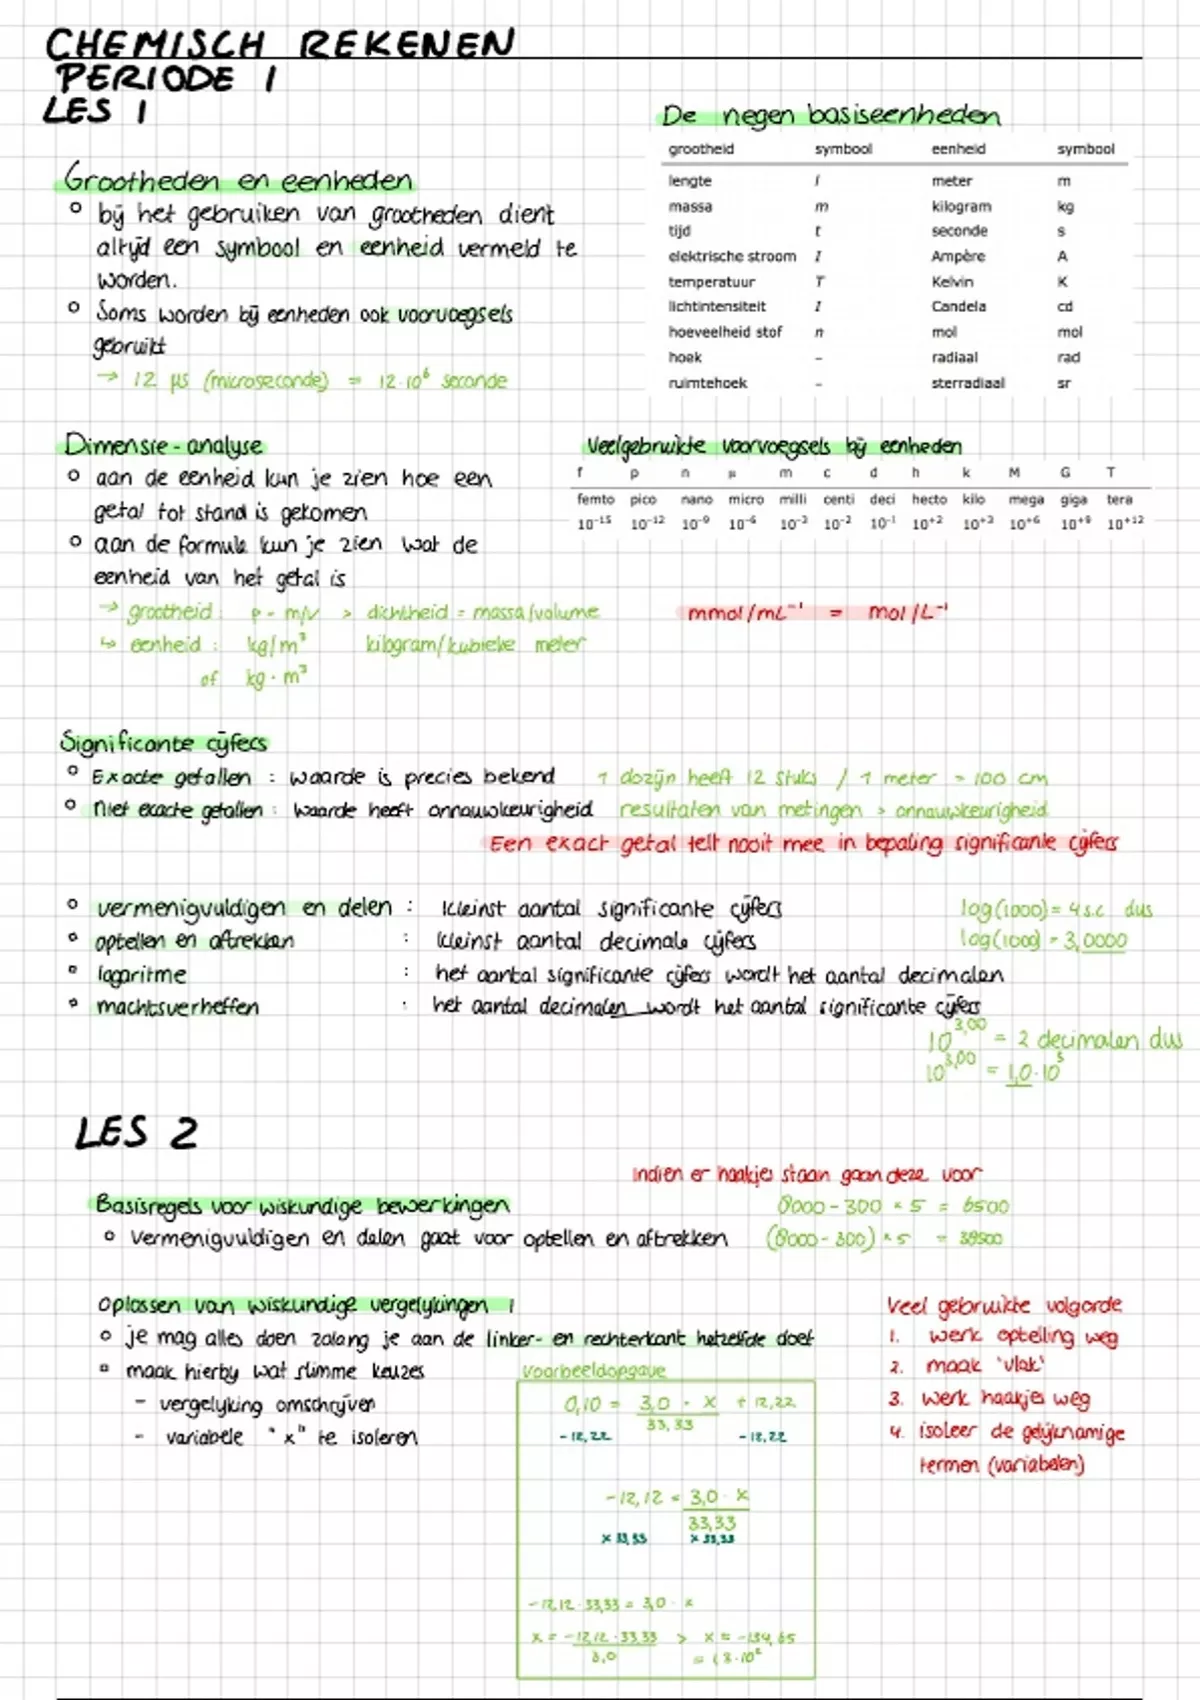 CHEMISCH REKENEN
PERIODE 1
LES 1
Grootheden en eenheden
o bij het gebruiken van grootheden dient
altijd een symbool en eenheid vermeld te
worden.
o Soms worden bij eenheden ook voorvoegsels
gebruikt
→ 12 µs (microseconde) = 12·10⁶ seconde
De negen basiseenheden
grootheid symbool eenheid symbool
lengte l meter m
massa m kilogram kg
tijd t seconde s
elektrische stroom I Ampère A
temperatuur T Kelvin K
lichtintensiteit I Candela cd
hoeveelheid stof n mol mol
hoek - radiaal rad
ruimtehoek - sterradiaal sr
Dimensie-analyse
o aan de eenheid kun je zien hoe een
getal tot stand is gekomen
o aan de formule kun je zien wat de
eenheid van het getal is
→ grootheid: ρ = m/v > dichtheid = massa/volume
↳ eenheid: kg/m³ kilogram/kubieke meter
of kg·m³
Veelgebruikte voorvoegsels bij eenheden
f p n µ m c d h k M G T
femto pico nano micro milli centi deci hecto kilo mega giga tera
10⁻¹⁵ 10⁻¹² 10⁻⁹ 10⁻⁶ 10⁻³ 10⁻² 10⁻¹ 10⁺² 10⁺³ 10⁺⁶ 10⁺⁹ 10⁺¹²
mmol/mL⁻¹ = mol/L⁻¹
Significante cijfers
o Exacte getallen : waarde is precies bekend 1 dozijn heeft 12 stuks / 1 meter = 100 cm
o Niet exacte getallen : waarde heeft onnauwkeurigheid resultaten van metingen > onnauwkeurigheid
Een exact getal telt nooit mee in bepaling significante cijfers
o vermenigvuldigen en delen : kleinst aantal significante cijfers log(1000) = 4 s.c. dus
o optellen en aftrekken : kleinst aantal decimale cijfers log(1000) = 3,0000
o logaritme : het aantal significante cijfers wordt het aantal decimalen
o machtsverheffen : het aantal decimalen wordt het aantal significante cijfers
10³,⁰⁰ = 2 decimalen dus
10³,⁰⁰ = 1,0·10³
LES 2
Indien er haakjes staan gaan deze voor
Basisregels voor wiskundige bewerkingen 8000 - 300 × 5 = 6500
o Vermenigvuldigen en delen gaat voor optellen en aftrekken (8000 - 300) × 5 = 38500
Oplossen van wiskundige vergelijkingen 1
o je mag alles doen zolang je aan de linker- en rechterkant hetzelfde doet
o maak hierbij wat slimme keuzes
- vergelijking omschrijven
- variabele "x" te isoleren
Voorbeeldopgave
0,10 = 3,0 · x + 12,22
33,33
-12,22 -12,22
-12,12 = 3,0 · x
33,33
× 33,33 × 33,33
-12,12·33,33 = 3,0 · x
x = -12,12·33,33 > x = -134,65
3,0 = 1,3·10²
Veel gebruikte volgorde
1. werk optelling weg
2. maak 'vlak'
3. werk haakjes weg
4. isoleer de gelijknamige
termen (variabelen)